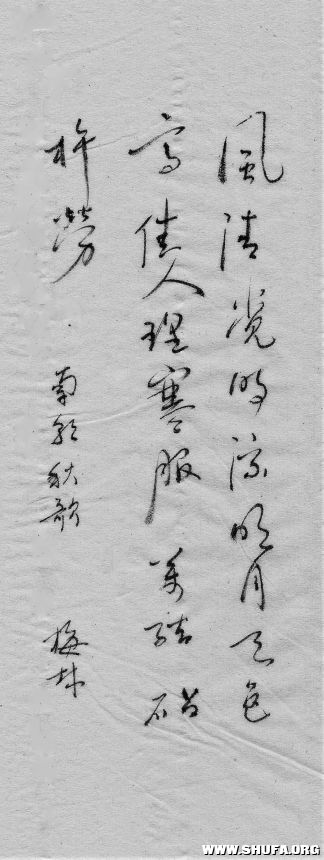 風清覺時涼明月天色
高佳人理寒服萬結砧
杵勞 南朝秋歌 梅林
WWW.SHUFA.ORG